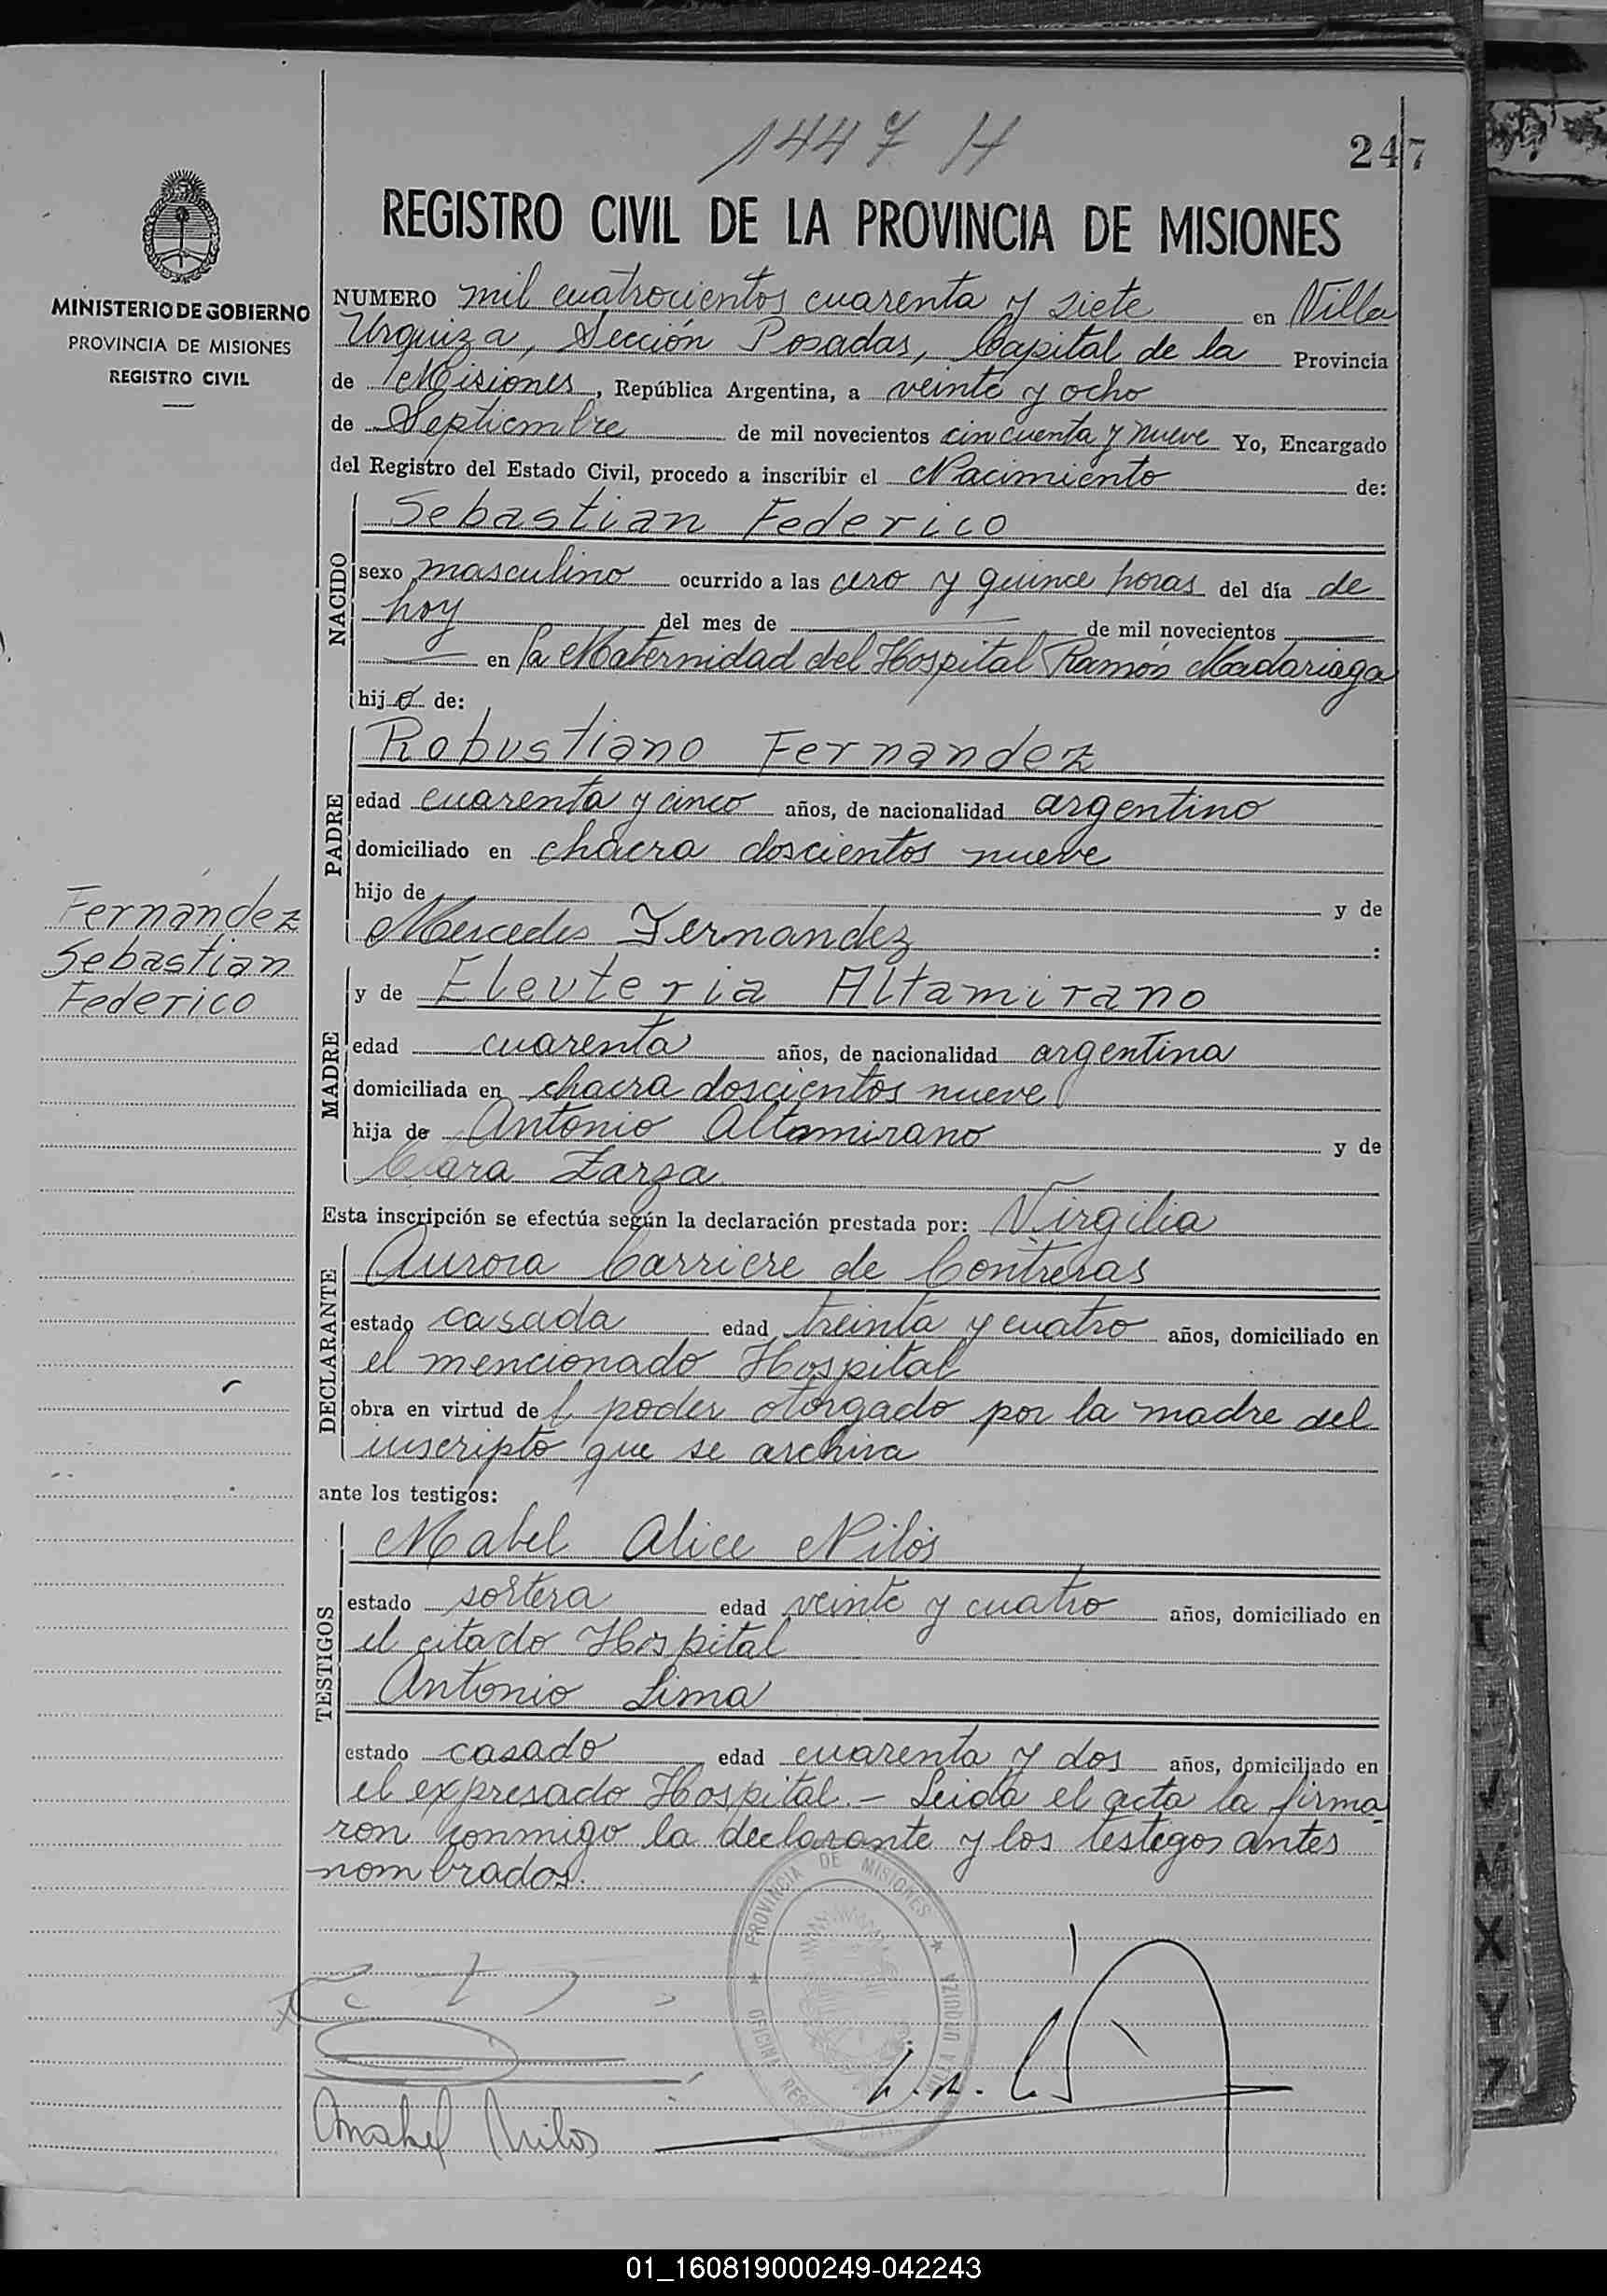 1447 H
247
REGISTRO CIVIL DE LA PROVINCIA DE MISIONES
MINISTERIO DE GOBIERNO
PROVINCIA DE MISIONES
REGISTRO CIVIL
NUMERO mil cuatrocientos cuarenta y siete en Villa
Urquiza, Sección Posadas, Capital de la Provincia
de Misiones, República Argentina, a veinte y ocho
de Septiembre de mil novecientos cincuenta y nueve Yo, Encargado
del Registro del Estado Civil, procedo a inscribir el Nacimiento de:
NACIDO
Sebastian Federico
sexo masculino ocurrido a las cero y quince horas del día de
hoy del mes de de mil novecientos
en la Maternidad del Hospital Ramón Madariaga
hijo de:
PADRE
Robustiano Fernandez
edad cuarenta y cinco años, de nacionalidad argentino
domiciliado en chacra doscientos nueve
hijo de y de
Mercedes Fernandez :
Fernández
Sebastian
Federico
MADRE
y de Eleuteria Altamirano
edad cuarenta años, de nacionalidad argentina
domiciliada en chacra doscientos nueve
hija de Antonio Altamirano y de
Clara Zarza
Esta inscripción se efectúa según la declaración prestada por: Virgilia
DECLARANTE
Aurora Carriere de Contreras
estado casada edad treinta y cuatro años, domiciliado en
el mencionado Hospital
obra en virtud de l poder otorgado por la madre del
inscripto que se archiva
ante los testigos:
TESTIGOS
Mabel Alice Milos
estado soltera edad veinte y cuatro años, domiciliado en
el citado Hospital
Antonio Lima
estado casado edad cuarenta y dos años, domiciliado en
el expresado Hospital.- Leida el acta la firma
ron conmigo la declarante y los testigos antes
nombrados.
PROVINCIA DE MISIONES
VILLA URQUIZA
OFICINA REGISTRO CIVIL
Mabel Milos
M
X
Y
Z
01_160819000249-042243